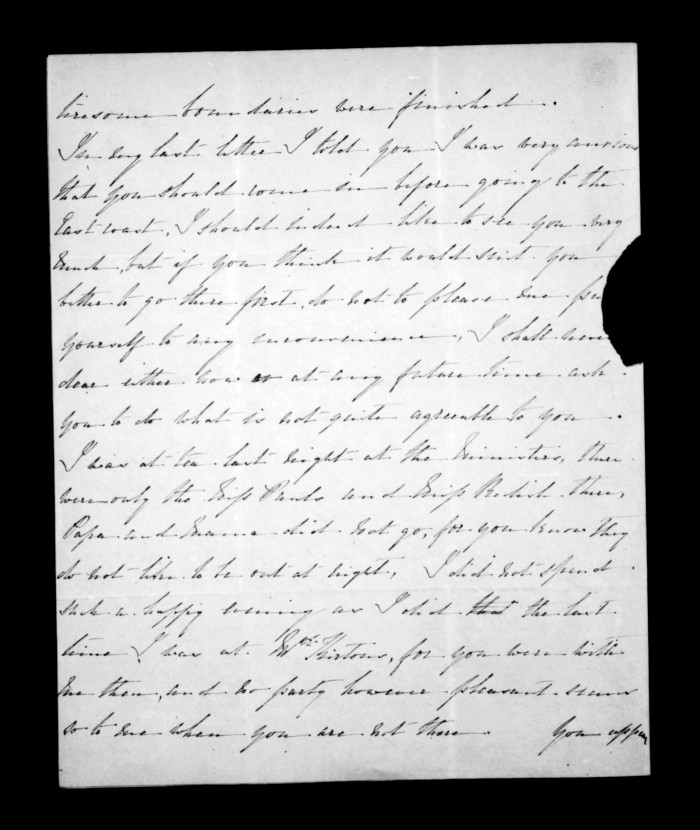 tiresome boundaries were finished.
In my last letter I told you I was very anxious
that you should come in before going to the
East coast, I should indeed like to see you very
much, but if you think it would suit you
better to go there first, do not to please me put
yourself to any inconvenience, I shall never
dear either now or at any future time ask
you to do what is not quite agreeable to you.
I was at tea last night at the Ministers, there
were only the Miss Pauls and Miss there,
Papa and Mama did not go, for you know they
do not like to be out at night, I did not spend
such a happy evening as I did the last
time I was at Mrs Kirtons, for you were with
me then, and no party however pleasant seems
so to me when you are not there. You appear